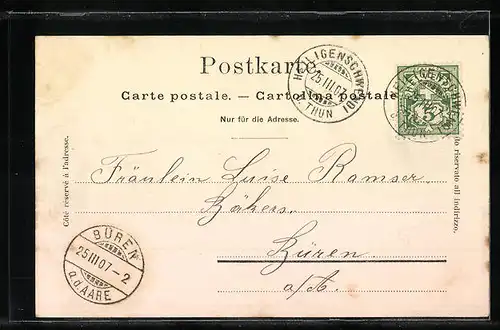 Postkarte
Carte postale. — Cartolina postale
Nur für die Adresse.
Côté réservé à l'adresse.
lo riservato all indirizzo.
HEILIGENSCHWENDI
25 III 07
THUN
5
Fräulein Luise Ramser
Bähers.
Büren
a/A.
BÜREN
25 III 07-2
a.d. AARE